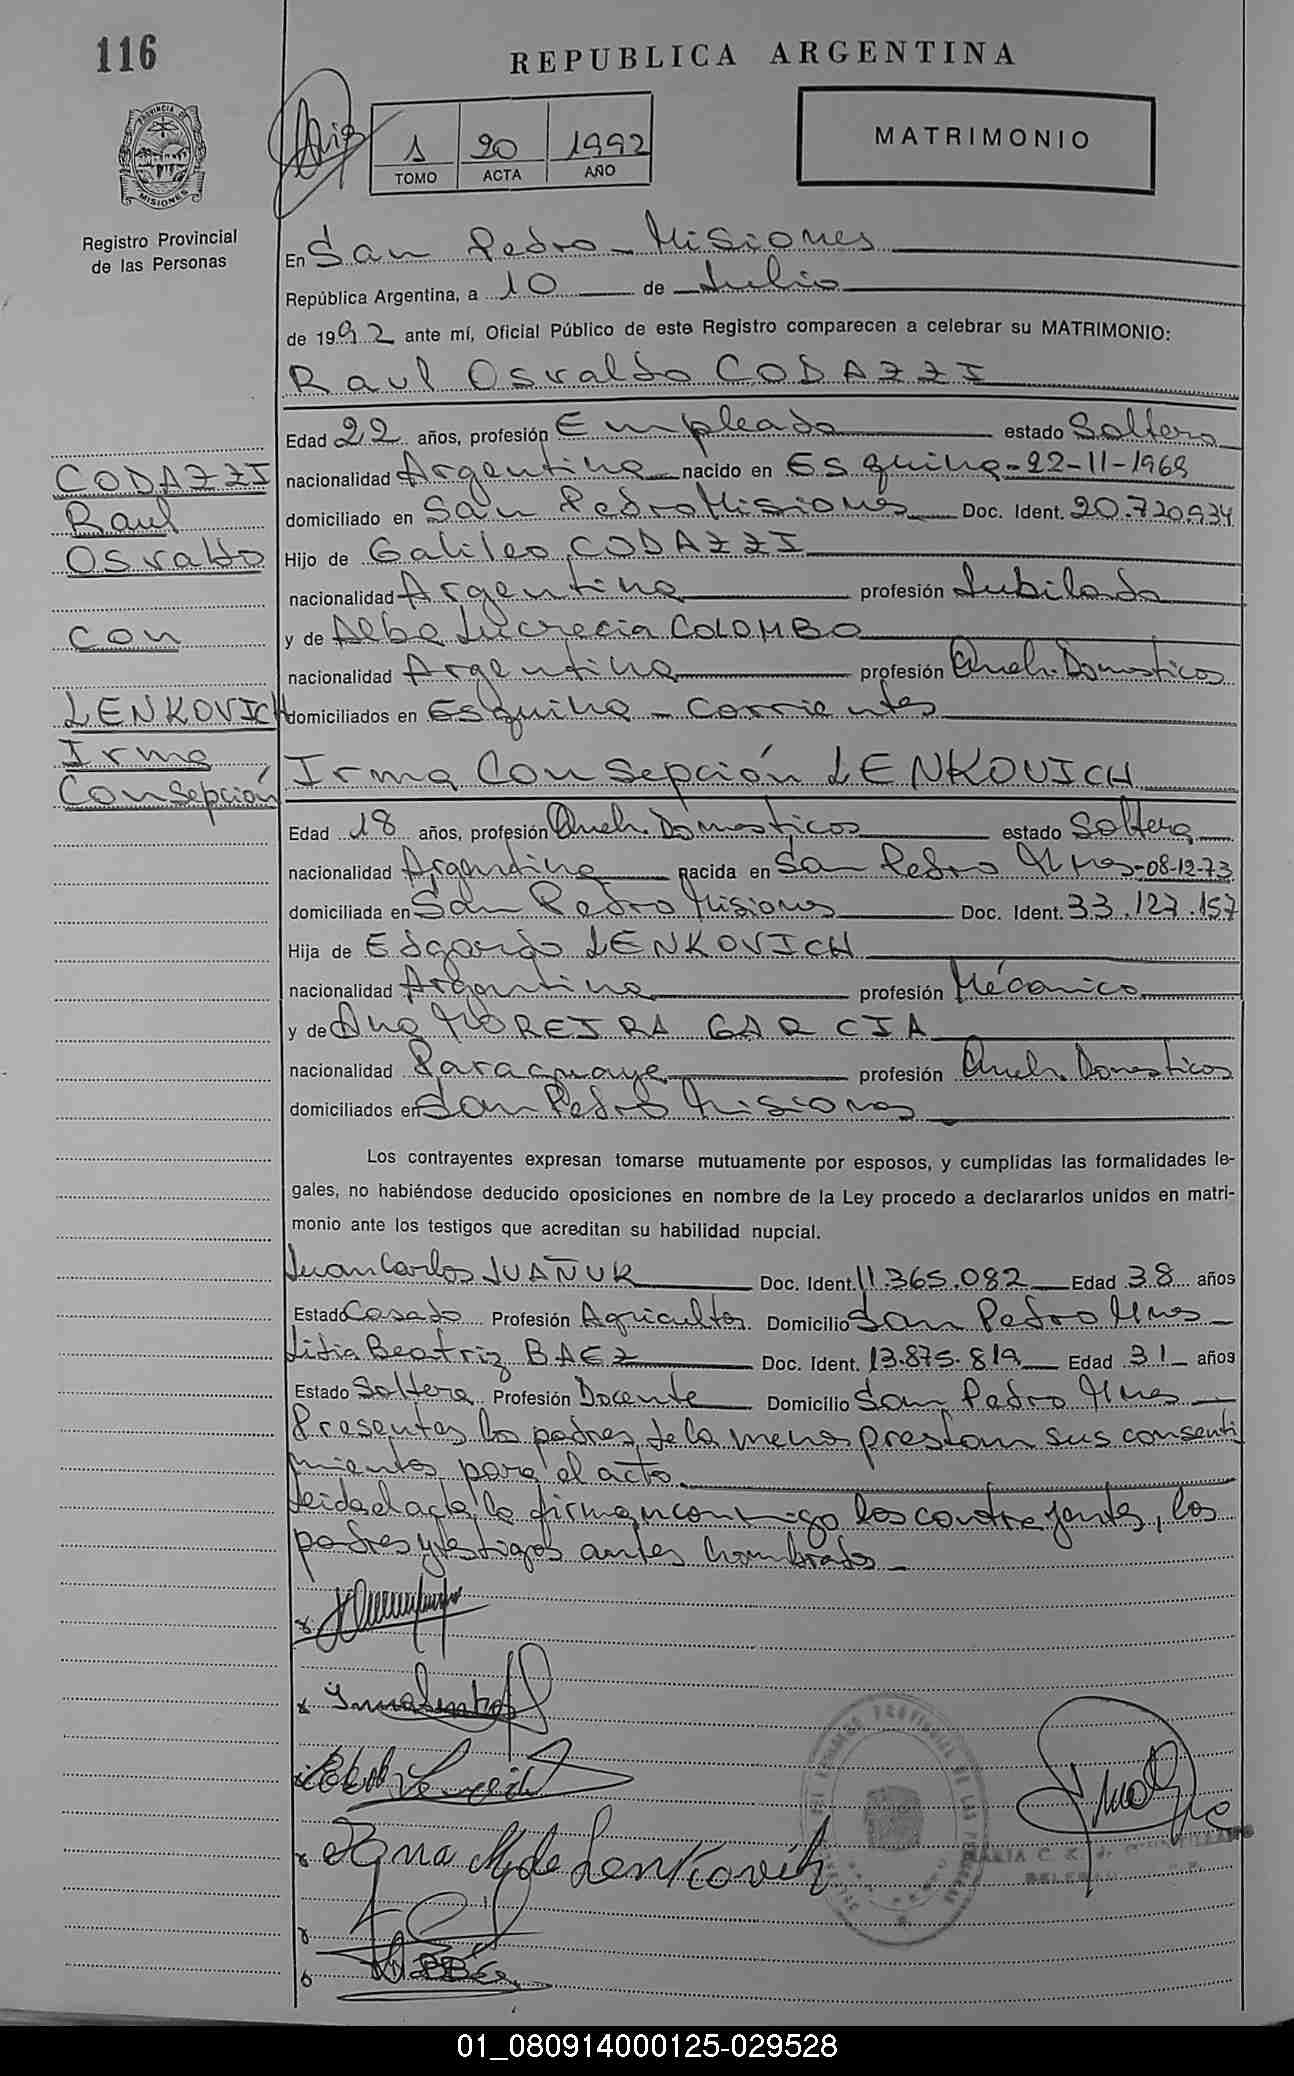 116
REPUBLICA ARGENTINA
PROVINCIA DE
MISIONES
1 20 1992
TOMO ACTA AÑO
MATRIMONIO
Registro Provincial
de las Personas
En San Pedro - Misiones
República Argentina, a 10 de Julio
de 1992 ante mí, Oficial Público de este Registro comparecen a celebrar su MATRIMONIO:
Raul Osvaldo CODAZZI
Edad 22 años, profesión Empleado estado Soltero
CODAZZI
Raul
Osvaldo
con
LENKOVICH
Irma
Consepción
nacionalidad Argentina nacido en Esquina - 22-11-1969
domiciliado en San Pedro Misiones Doc. Ident. 20.720.934
Hijo de Galileo CODAZZI
nacionalidad Argentina profesión Jubilado
y de Alba Lucrecia COLOMBO
nacionalidad Argentina profesión Queh. Domesticos
domiciliados en Esquina - Corrientes
Irma Consepción LENKOVICH
Edad 18 años, profesión Queh. Domesticos estado Soltera
nacionalidad Argentina nacida en San Pedro Mnes - 08-12-73
domiciliada en San Pedro Misiones Doc. Ident. 33.127.157
Hija de Edgardo LENKOVICH
nacionalidad Argentina profesión Mécanico
y de Ana MOREIRA GARCIA
nacionalidad Paraguaya profesión Queh. Domesticos
domiciliados en San Pedro Misiones
Los contrayentes expresan tomarse mutuamente por esposos, y cumplidas las formalidades le-
gales, no habiéndose deducido oposiciones en nombre de la Ley procedo a declararlos unidos en matri-
monio ante los testigos que acreditan su habilidad nupcial.
Juan Carlos JUAÑUK Doc. Ident. 11.365.082 Edad 38 años
Estado Casado Profesión Agricultor Domicilio San Pedro Mnes
Lidia Beatriz BAEZ Doc. Ident. 13.875.819 Edad 31 años
Estado Soltera Profesión Docente Domicilio San Pedro Mnes
Presentes los padres de la menor prestan sus consenti
mientos para el acto.
Leida el acta, la firman conmigo los contrayentes, los
padres y testigos antes nombrados
Ana M de Lenkovich
01_080914000125-029528